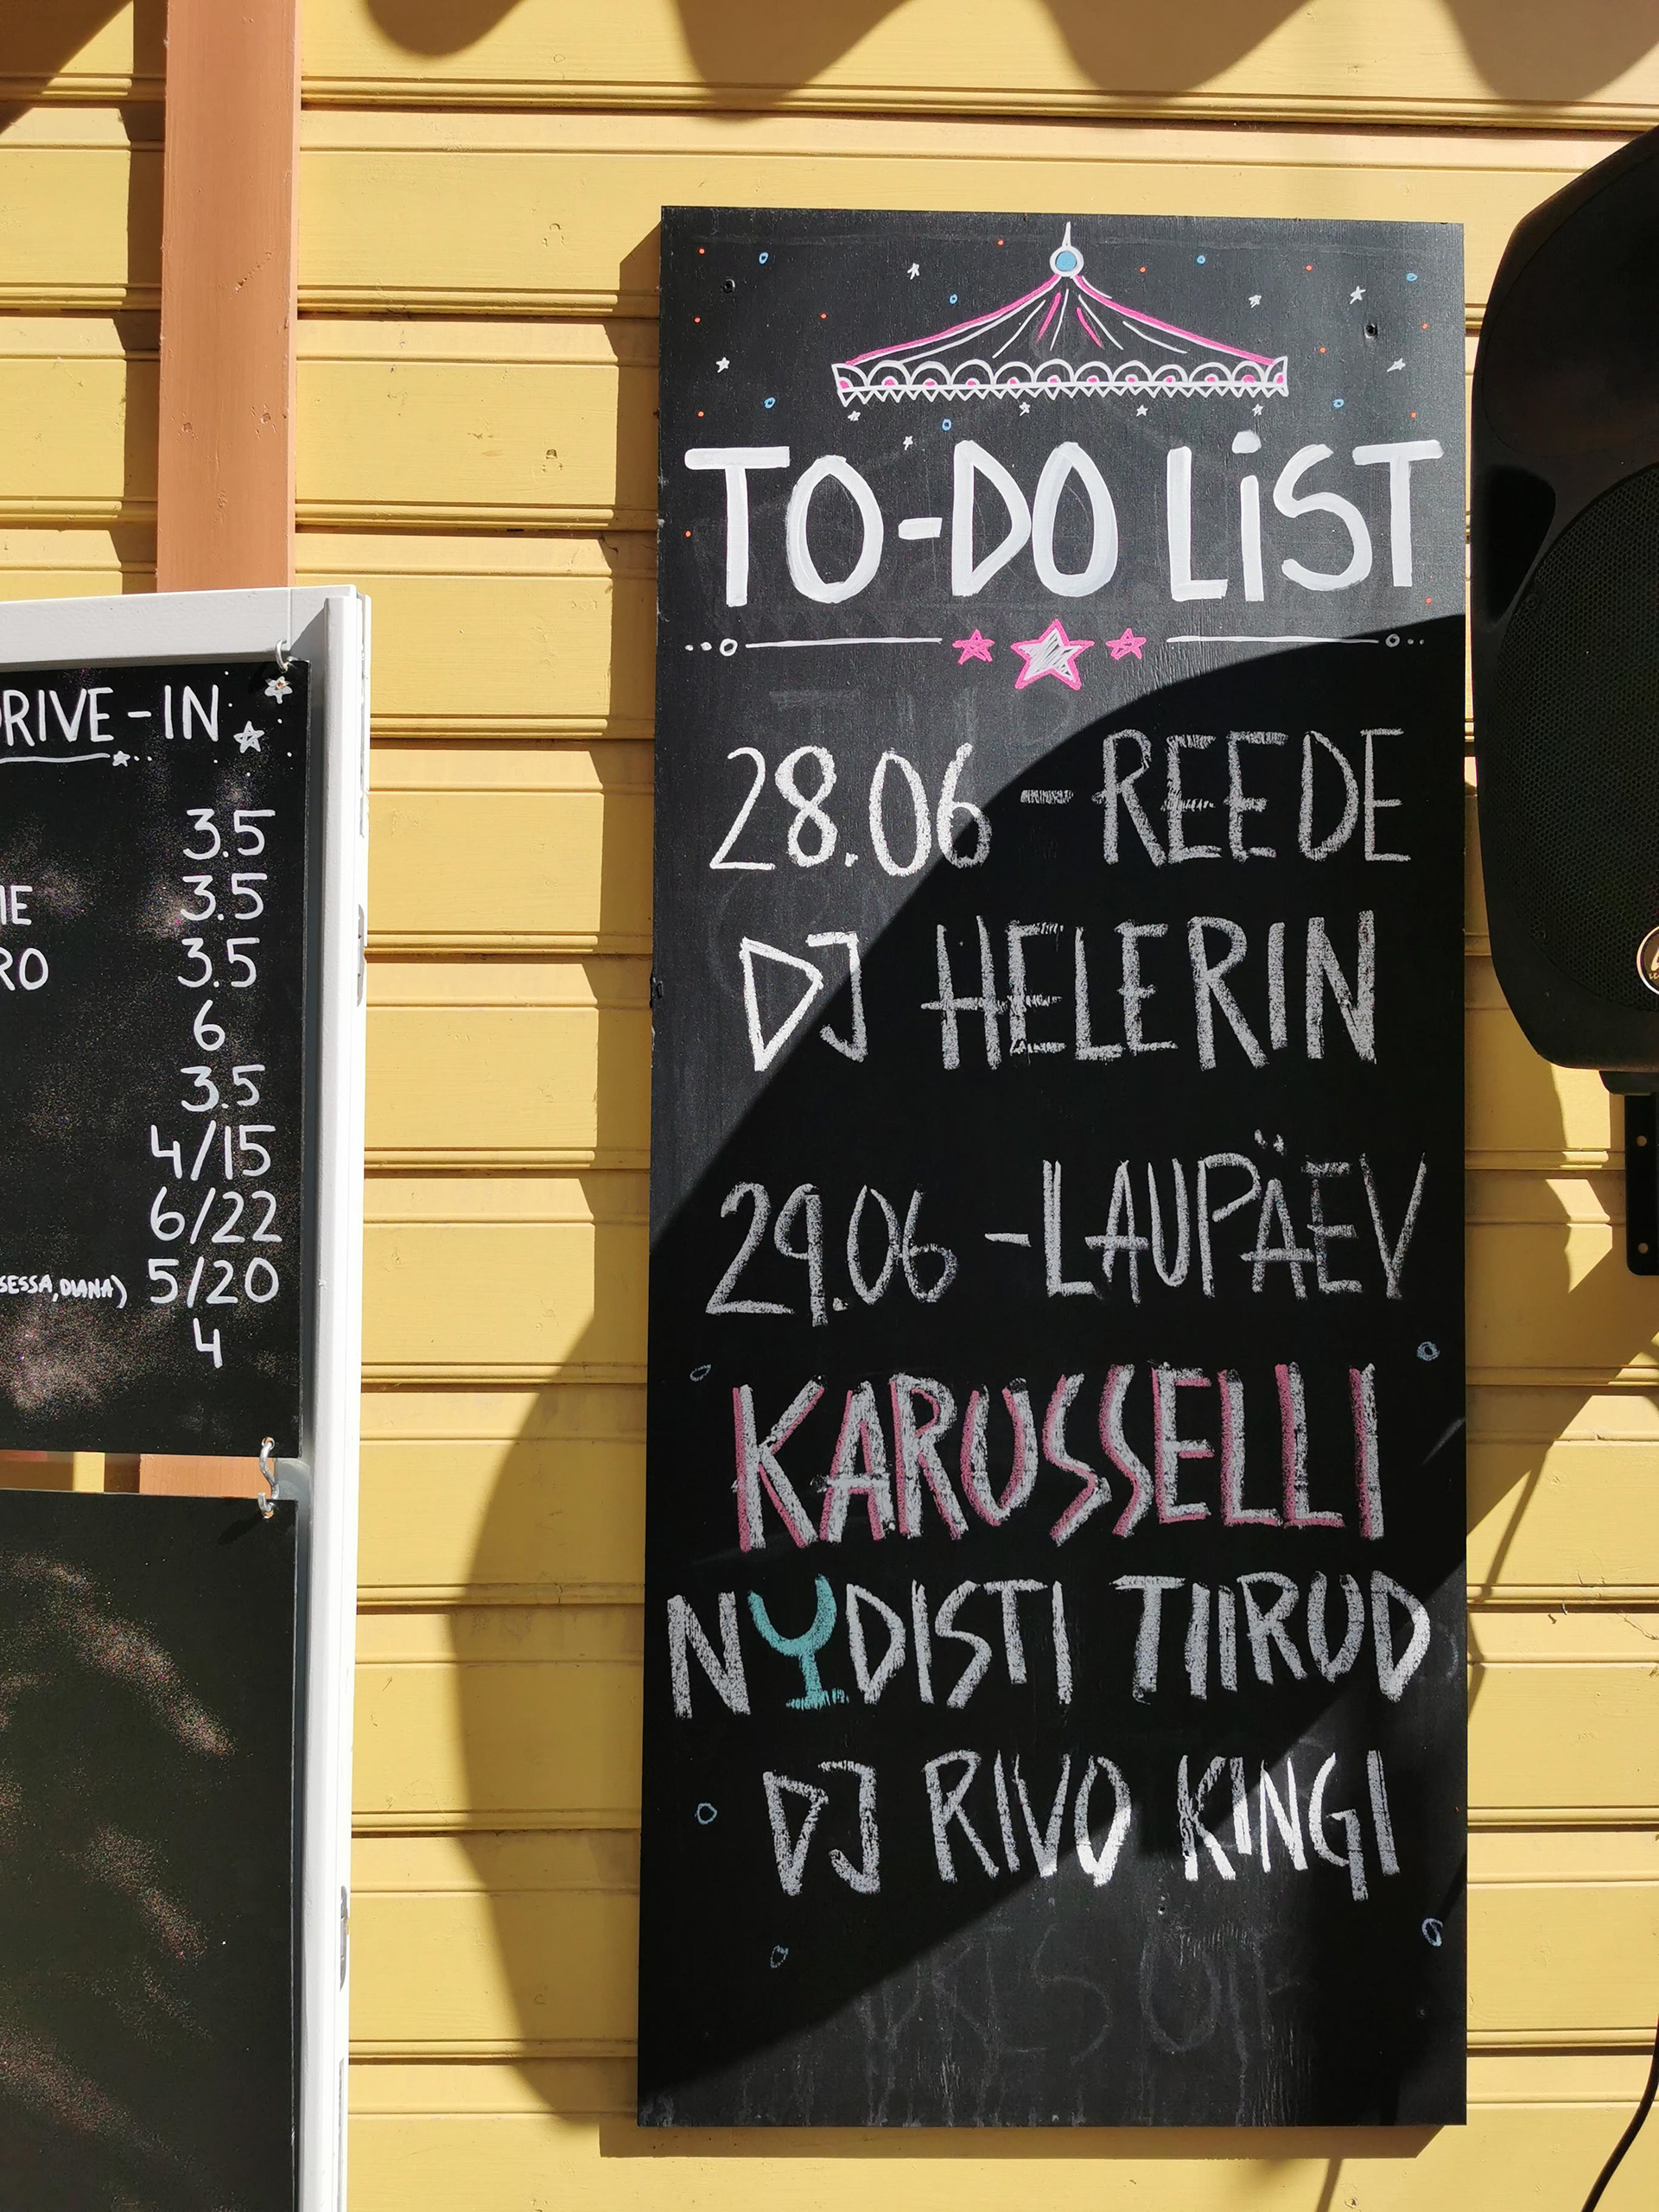 TO-DO LIST
28.06 - REEDE
DJ HELERIN
29.06 - LAUPÄEV
KARUSSELLI
NYDISTI TIIRUD
DJ RIVO KINGI
DRIVE-IN
3.5
3.5
3.5
6
3.5
4/15
6/22
DIANA) 5/20
4